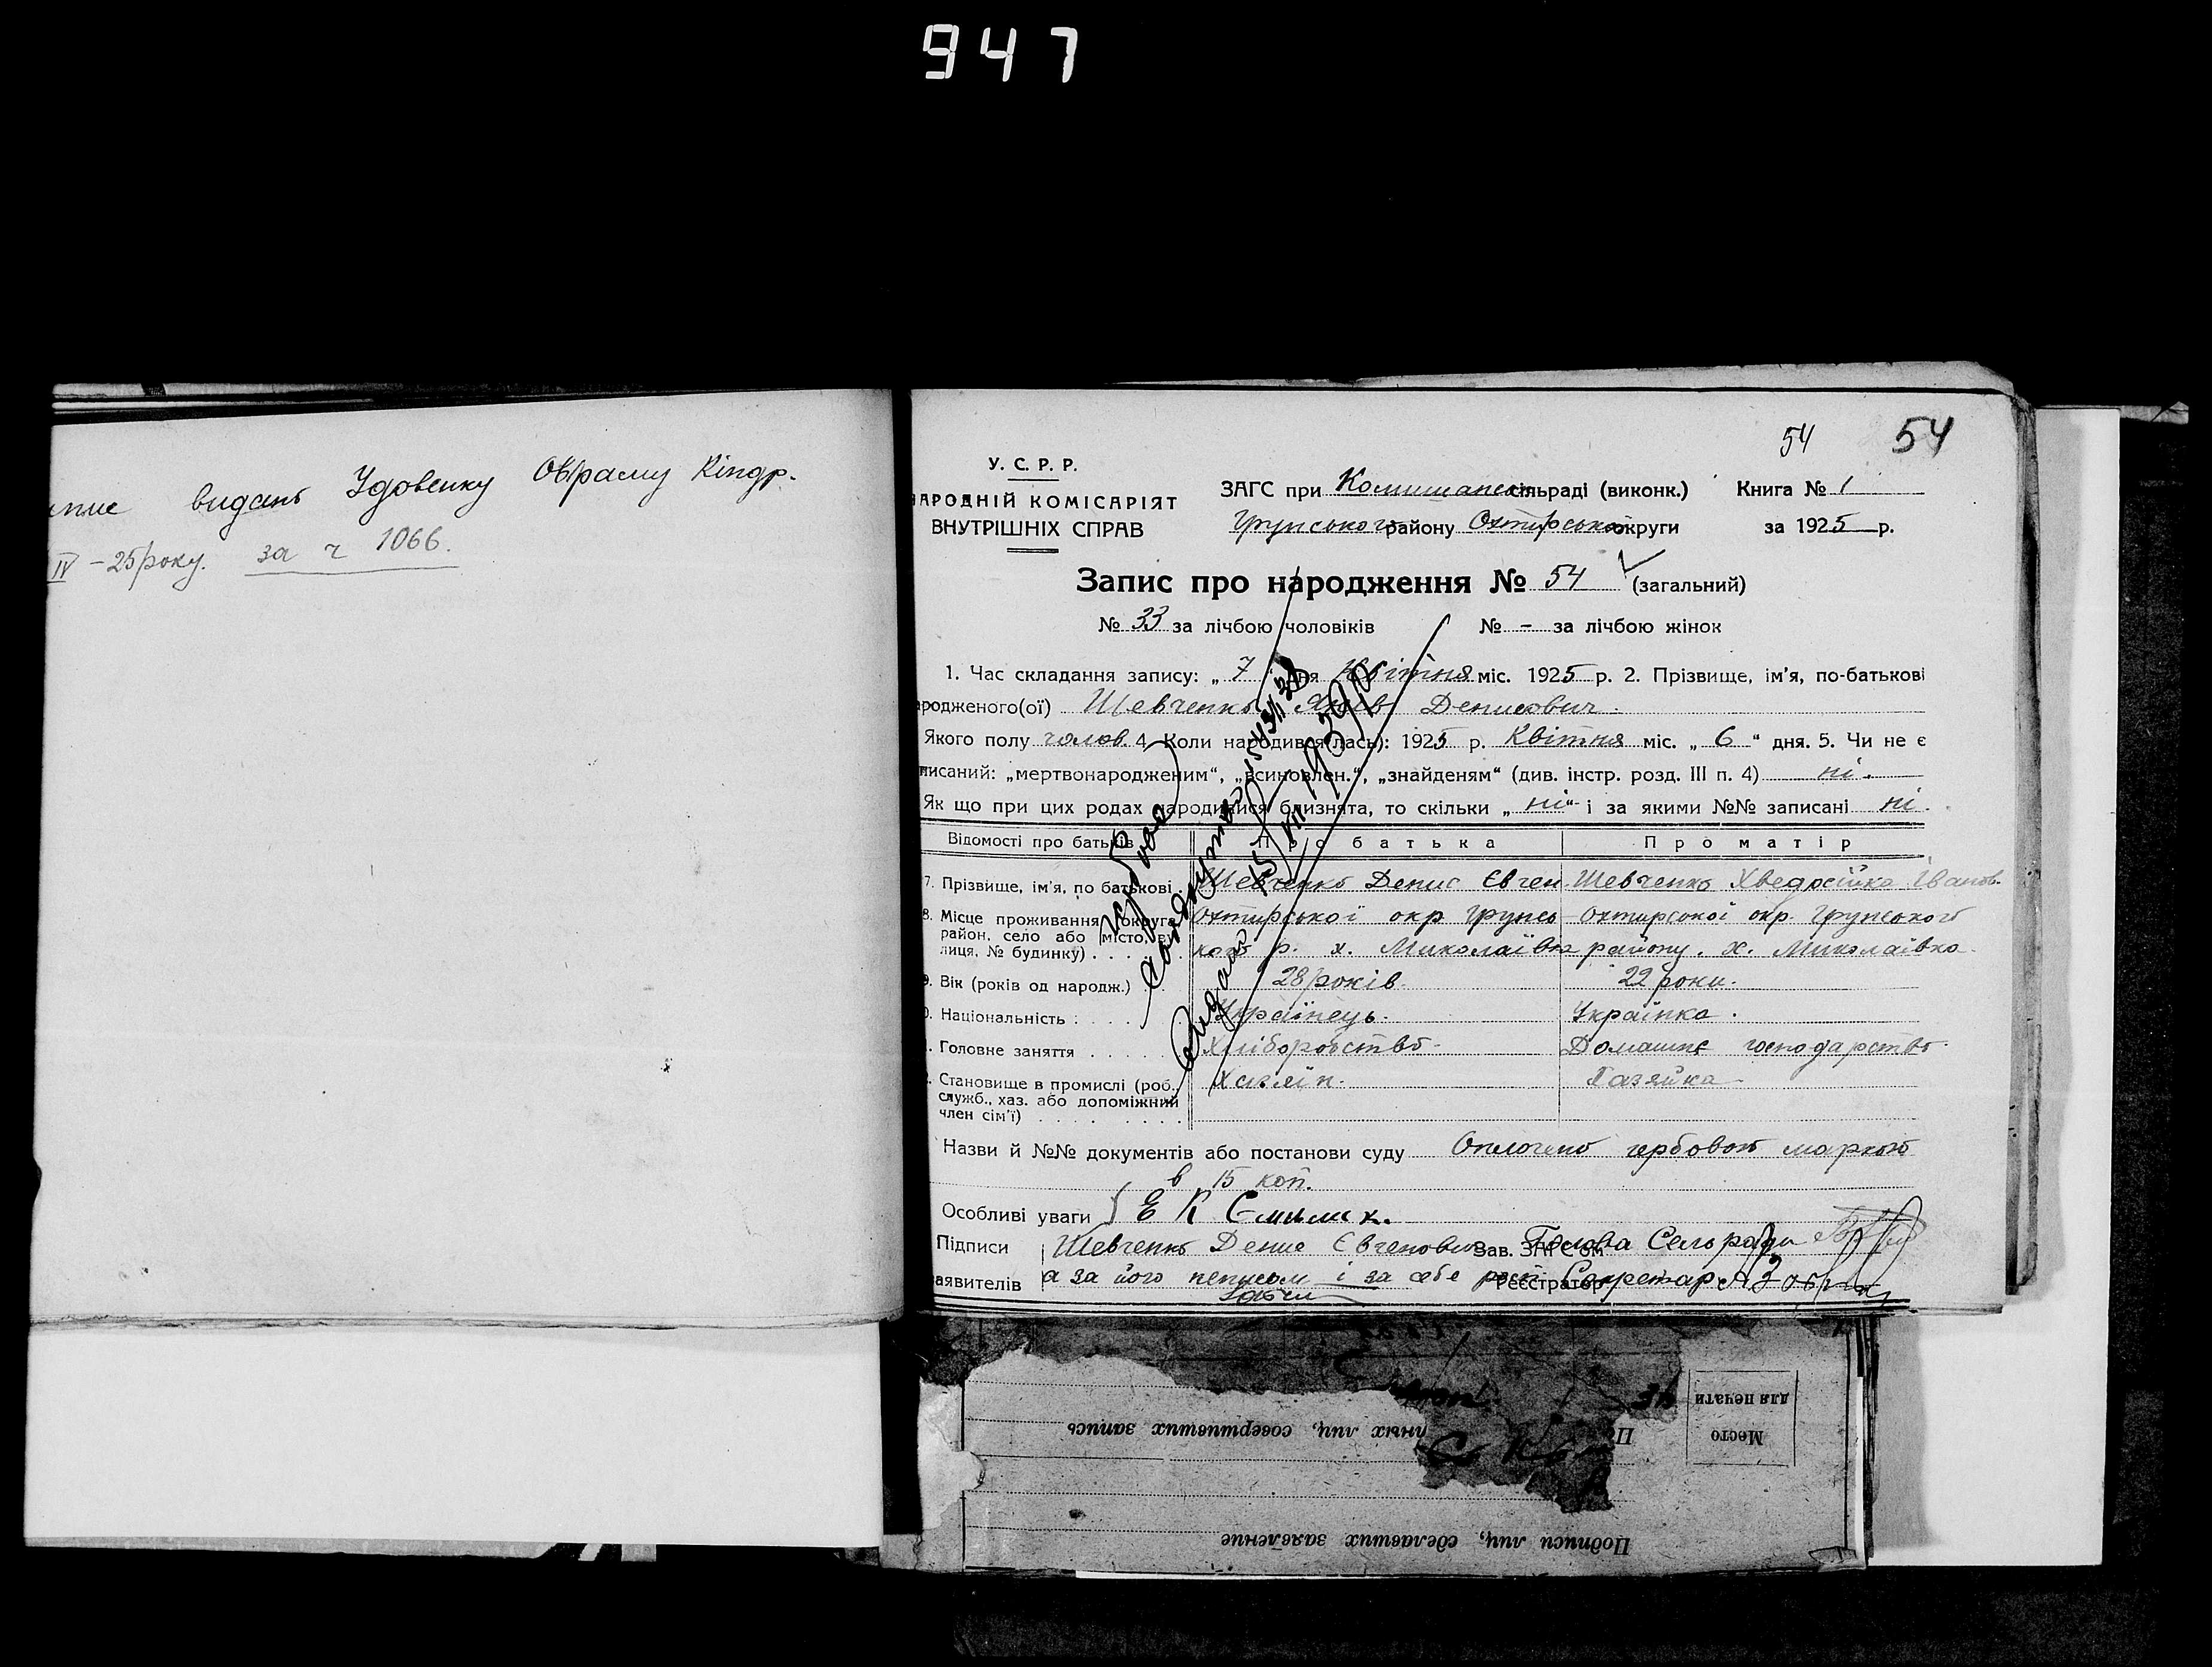 947
видано Удовенку Овраму Кіндр.
IV – 25 року. за ч 1066.
54 54
У. С. Р. Р.
НАРОДНІЙ КОМІСАРІЯТ
ВНУТРІШНІХ СПРАВ
ЗАГС при Комишанськ сільраді (виконк.) Книга № 1
Грунського району Охтирської округи за 1925 р.
Запис про народження № 54 (загальний)
№ 33 за лічбою чоловіків № – за лічбою жінок
1. Час складання запису: „ 7 “ дня Квітня міс. 1925 р. 2. Прізвище, ім'я, по-батькові
родженого(ої) Шевченко Яків Денисович.
Якого полу чолов. 4. Коли народився(лась): 1925 р. Квітня міс. „ 6 “ дня. 5. Чи не є
писаний: „мертвонародженим“, „всиновлен.“, „знайденям“ (див. інстр. розд. III п. 4) ні.
Як що при цих родах народилися близнята, то скільки „ ні “ і за якими №№ записані ні.
Відомості про батьків Про батька Про матір
7. Прізвище, ім'я, по батькові Шевченко Денис Євген. Шевченко Хведосійка Іванов.
8. Місце проживання (округа, район, село або місто, вулиця, № будинку) Охтирської окр Грунсь Охтирської окр. Грунського
кого р. х. Миколаївка району. х. Миколаївка.
9. Вік (років од народж.) 28 років. 22 роки.
Національність Українець. Українка.
Головне заняття Хліборобство. Домашнє господарство.
Становище в промислі (роб., служб., хаз. або допоміжний член сім'ї) Хазяїн. Хазяйка.
Назви й №№ документів або постанови суду Оплочено гербовою маркою
в 15 коп.
Особливі уваги Е К
Підписи Шевченко Денис Євгенович Зав. ЗАГСом Голова Сельради
аявителів а за його і за себе Реєстратор Секретар
Видано 15/VII 1939 р
Место
для печати
лных лиц, совершивших запись
Подписи лиц, сделавших заявление